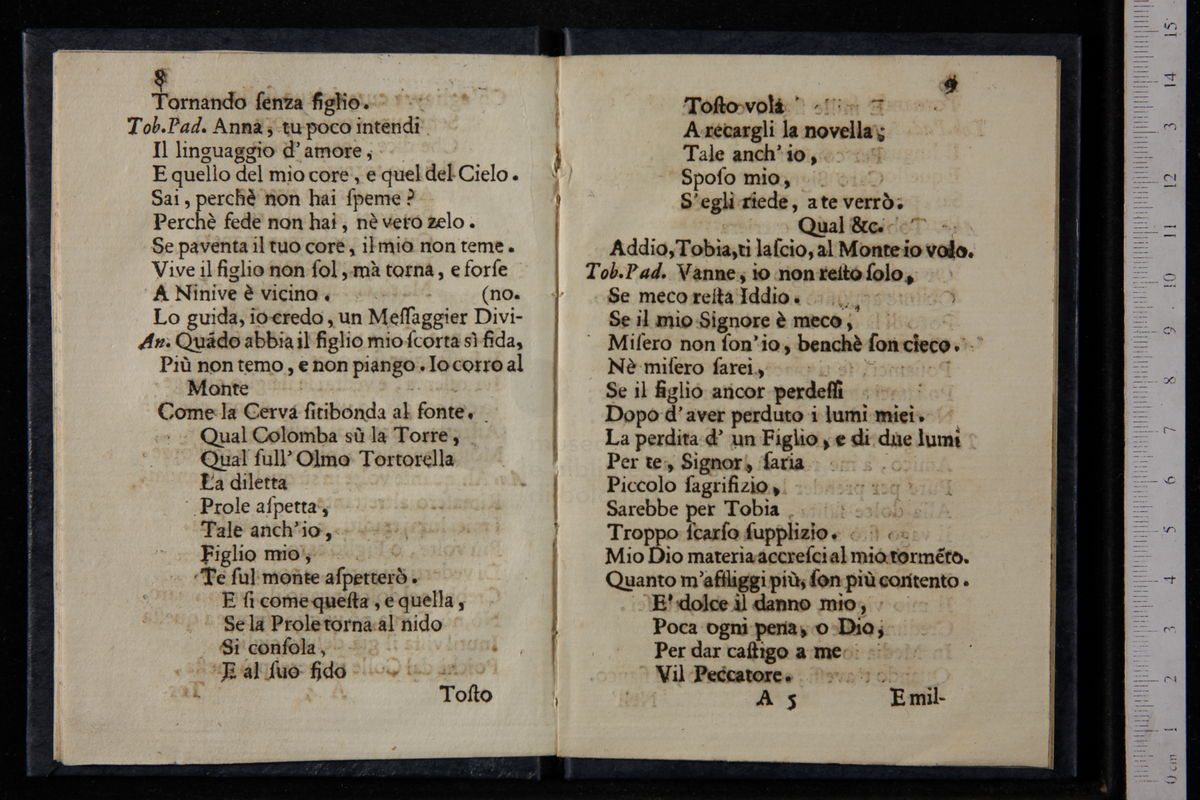 8
Tornando ſenza figlio.
Tob.Pad. Anna, tu poco intendi
Il linguaggio d'amore,
E quello del mio core, e quel del Cielo.
Sai, perchè non hai ſpeme?
Perchè fede non hai, nè vero zelo.
Se paventa il tuo core, il mio non teme.
Vive il figlio non ſol, mà torna, e forſe
A Ninive è vicino. (no.
Lo guida, io credo, un Meſſaggier Divi-
An. Quãdo abbia il figlio mio ſcorta sì fida,
Più non temo, e non piango. Io corro al
Monte
Come la Cerva ſitibonda al fonte.
Qual Colomba sù la Torre,
Qual ſull'Olmo Tortorella
La diletta
Prole aſpetta,
Tale anch'io,
Figlio mio,
Te ſul monte aſpetterò.
E ſi come queſta, e quella,
Se la Prole torna al nido
Si conſola,
E al ſuo fido
Toſto
9
Toſto vola
A recargli la novella;
Tale anch'io,
Spoſo mio,
S'egli riede, a te verrò.
Qual &c.
Addio, Tobia, ti laſcio, al Monte io volo.
Tob.Pad. Vanne, io non reſto ſolo,
Se meco reſta Iddio.
Se il mio Signore è meco,
Miſero non ſon'io, benchè ſon cieco.
Nè miſero ſarei,
Se il figlio ancor perdeſſi
Dopo d'aver perduto i lumi miei.
La perdita d'un Figlio, e di due lumi
Per te, Signor, ſaria
Piccolo ſagrifizio,
Sarebbe per Tobia
Troppo ſcarſo ſupplizio.
Mio Dio materia accreſci al mio tormẽto.
Quanto m'affliggi più, ſon più contento.
E' dolce il danno mio,
Poca ogni pena, o Dio,
Per dar caſtigo a me
Vil Peccatore.
A 5 E mil-
0 cm 1 2 3 4 5 6 7 8 9 10 11 12 13 14 15